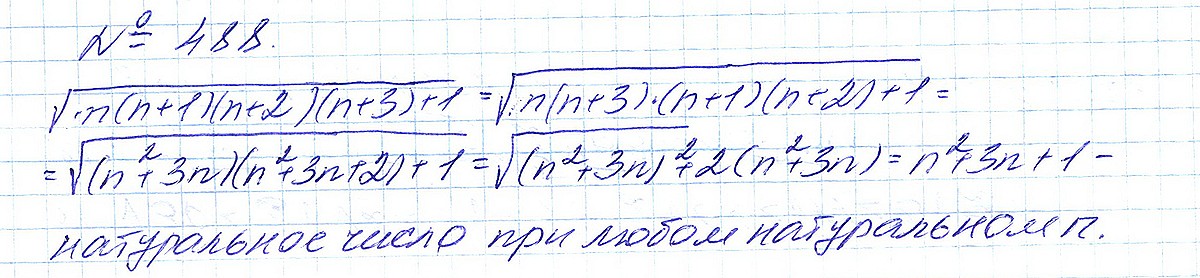 № 488.
√(n(n+1)(n+2)(n+3)+1) = √(n(n+3)·(n+1)(n+2)+1) =
= √((n²+3n)(n²+3n+2)+1) = √((n²+3n)²+2(n²+3n) = n²+3n+1 –
натуральное число при любом натуральном n.